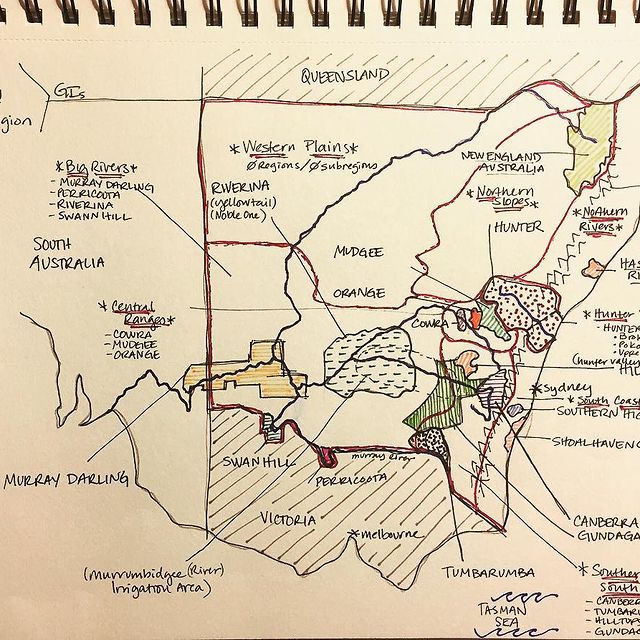 QUEENSLAND
GIs
gion
*Western Plains*
ØRegions/Øsubregions
*Big Rivers*
- MURRAY DARLING
- PERRICOOTA
- RIVERINA
- SWANN HILL
RIVERINA
(yellowtail)
(Noble One)
NEW ENGLAND
AUSTRALIA
*Northern
Slopes*
*Northern
Rivers*
HUNTER
SOUTH
AUSTRALIA
MUDGEE
HAS
RI
ORANGE
*Central
Ranges*
- COWRA
- MUDGEE
- ORANGE
COWRA
*Hunter
- HUNTER
(hunter valley
*Sydney
*South Coas
SOUTHERN HIG
SHOALHAVEN C
MURRAY DARLING
SWAN HILL
murray River
PERRICOOTA
VICTORIA
*melbourne
CANBERRA
GUNDAGA
(Murrumbidgee (River)
Irrigation Area)
TUMBARUMBA
*Souther
South
- CANBER
- TUMBAR
- HILLTOP
- GUNDAG
TASMAN
SEA